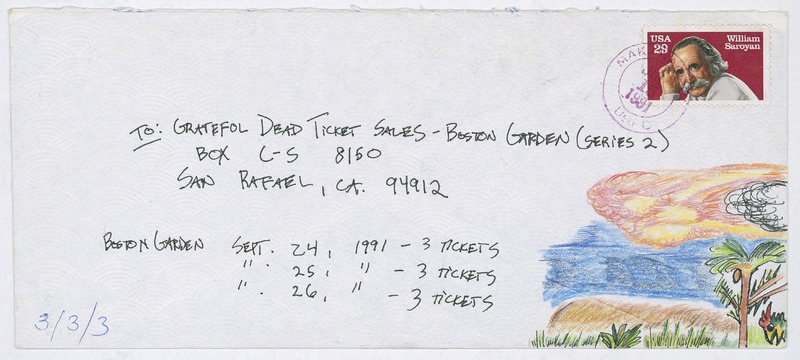 USA
29
William
Saroyan
1991
TO: GRATEFUL DEAD TICKET SALES - BOSTON GARDEN (SERIES 2)
BOX C-S 8150
SAN RAFAEL, CA. 94912
BOSTON GARDEN SEPT. 24, 1991 - 3 TICKETS
" . 25, " - 3 TICKETS
" . 26, " - 3 TICKETS
3/3/3